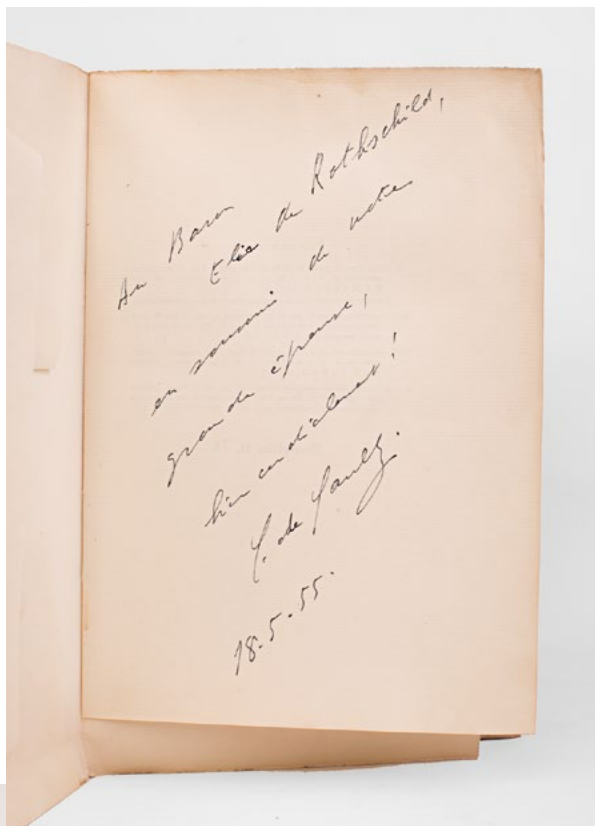 Au Baron
Elie de Rothschild,
en souvenir de notre
grande épreuve,
bien cordialement !
C. de Gaulle.
18.5.55.